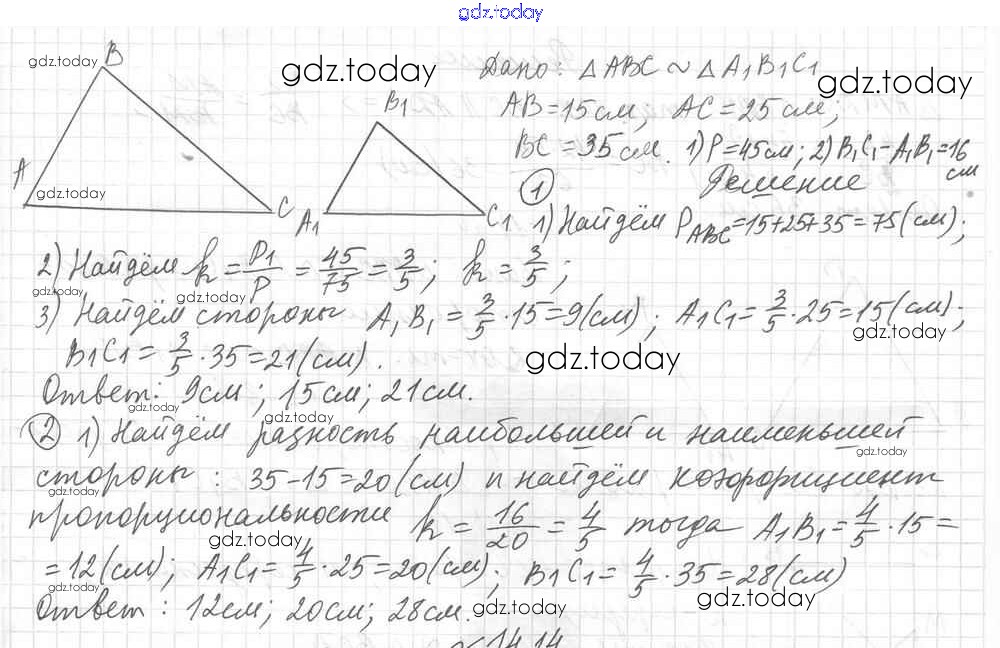 gdz.today
B
gdz.today
gdz.today
Дано: △ABC ~ △A1B1C1
gdz.today
B1
AB = 15 см, AC = 25 см;
BC = 35 см. 1) P = 45 см; 2) B1C1 - A1B1 = 16 см
A
gdz.today
C
A1
C1
① Решение
1) Найдём P_ABC = 15+25+35 = 75 (см);
2) Найдём k = P1/P = 45/75 = 3/5; k = 3/5;
gdz.today
gdz.today
3) Найдём стороны A1B1 = 3/5 · 15 = 9 (см); A1C1 = 3/5 · 25 = 15 (см);
gdz.today
B1C1 = 3/5 · 35 = 21 (см).
gdz.today
Ответ: 9 см; 15 см; 21 см.
gdz.today
gdz.today
② 1) Найдём разность наибольшей и наименьшей
gdz.today
стороны: 35 - 15 = 20 (см) и найдём коэффициент
gdz.today
пропорциональности k = 16/20 = 4/5 тогда A1B1 = 4/5 · 15 =
gdz.today
gdz.today
= 12 (см); A1C1 = 4/5 · 25 = 20 (см); B1C1 = 4/5 · 35 = 28 (см)
gdz.today
Ответ: 12 см; 20 см; 28 см.
gdz.today
gdz.today
№ 14.14